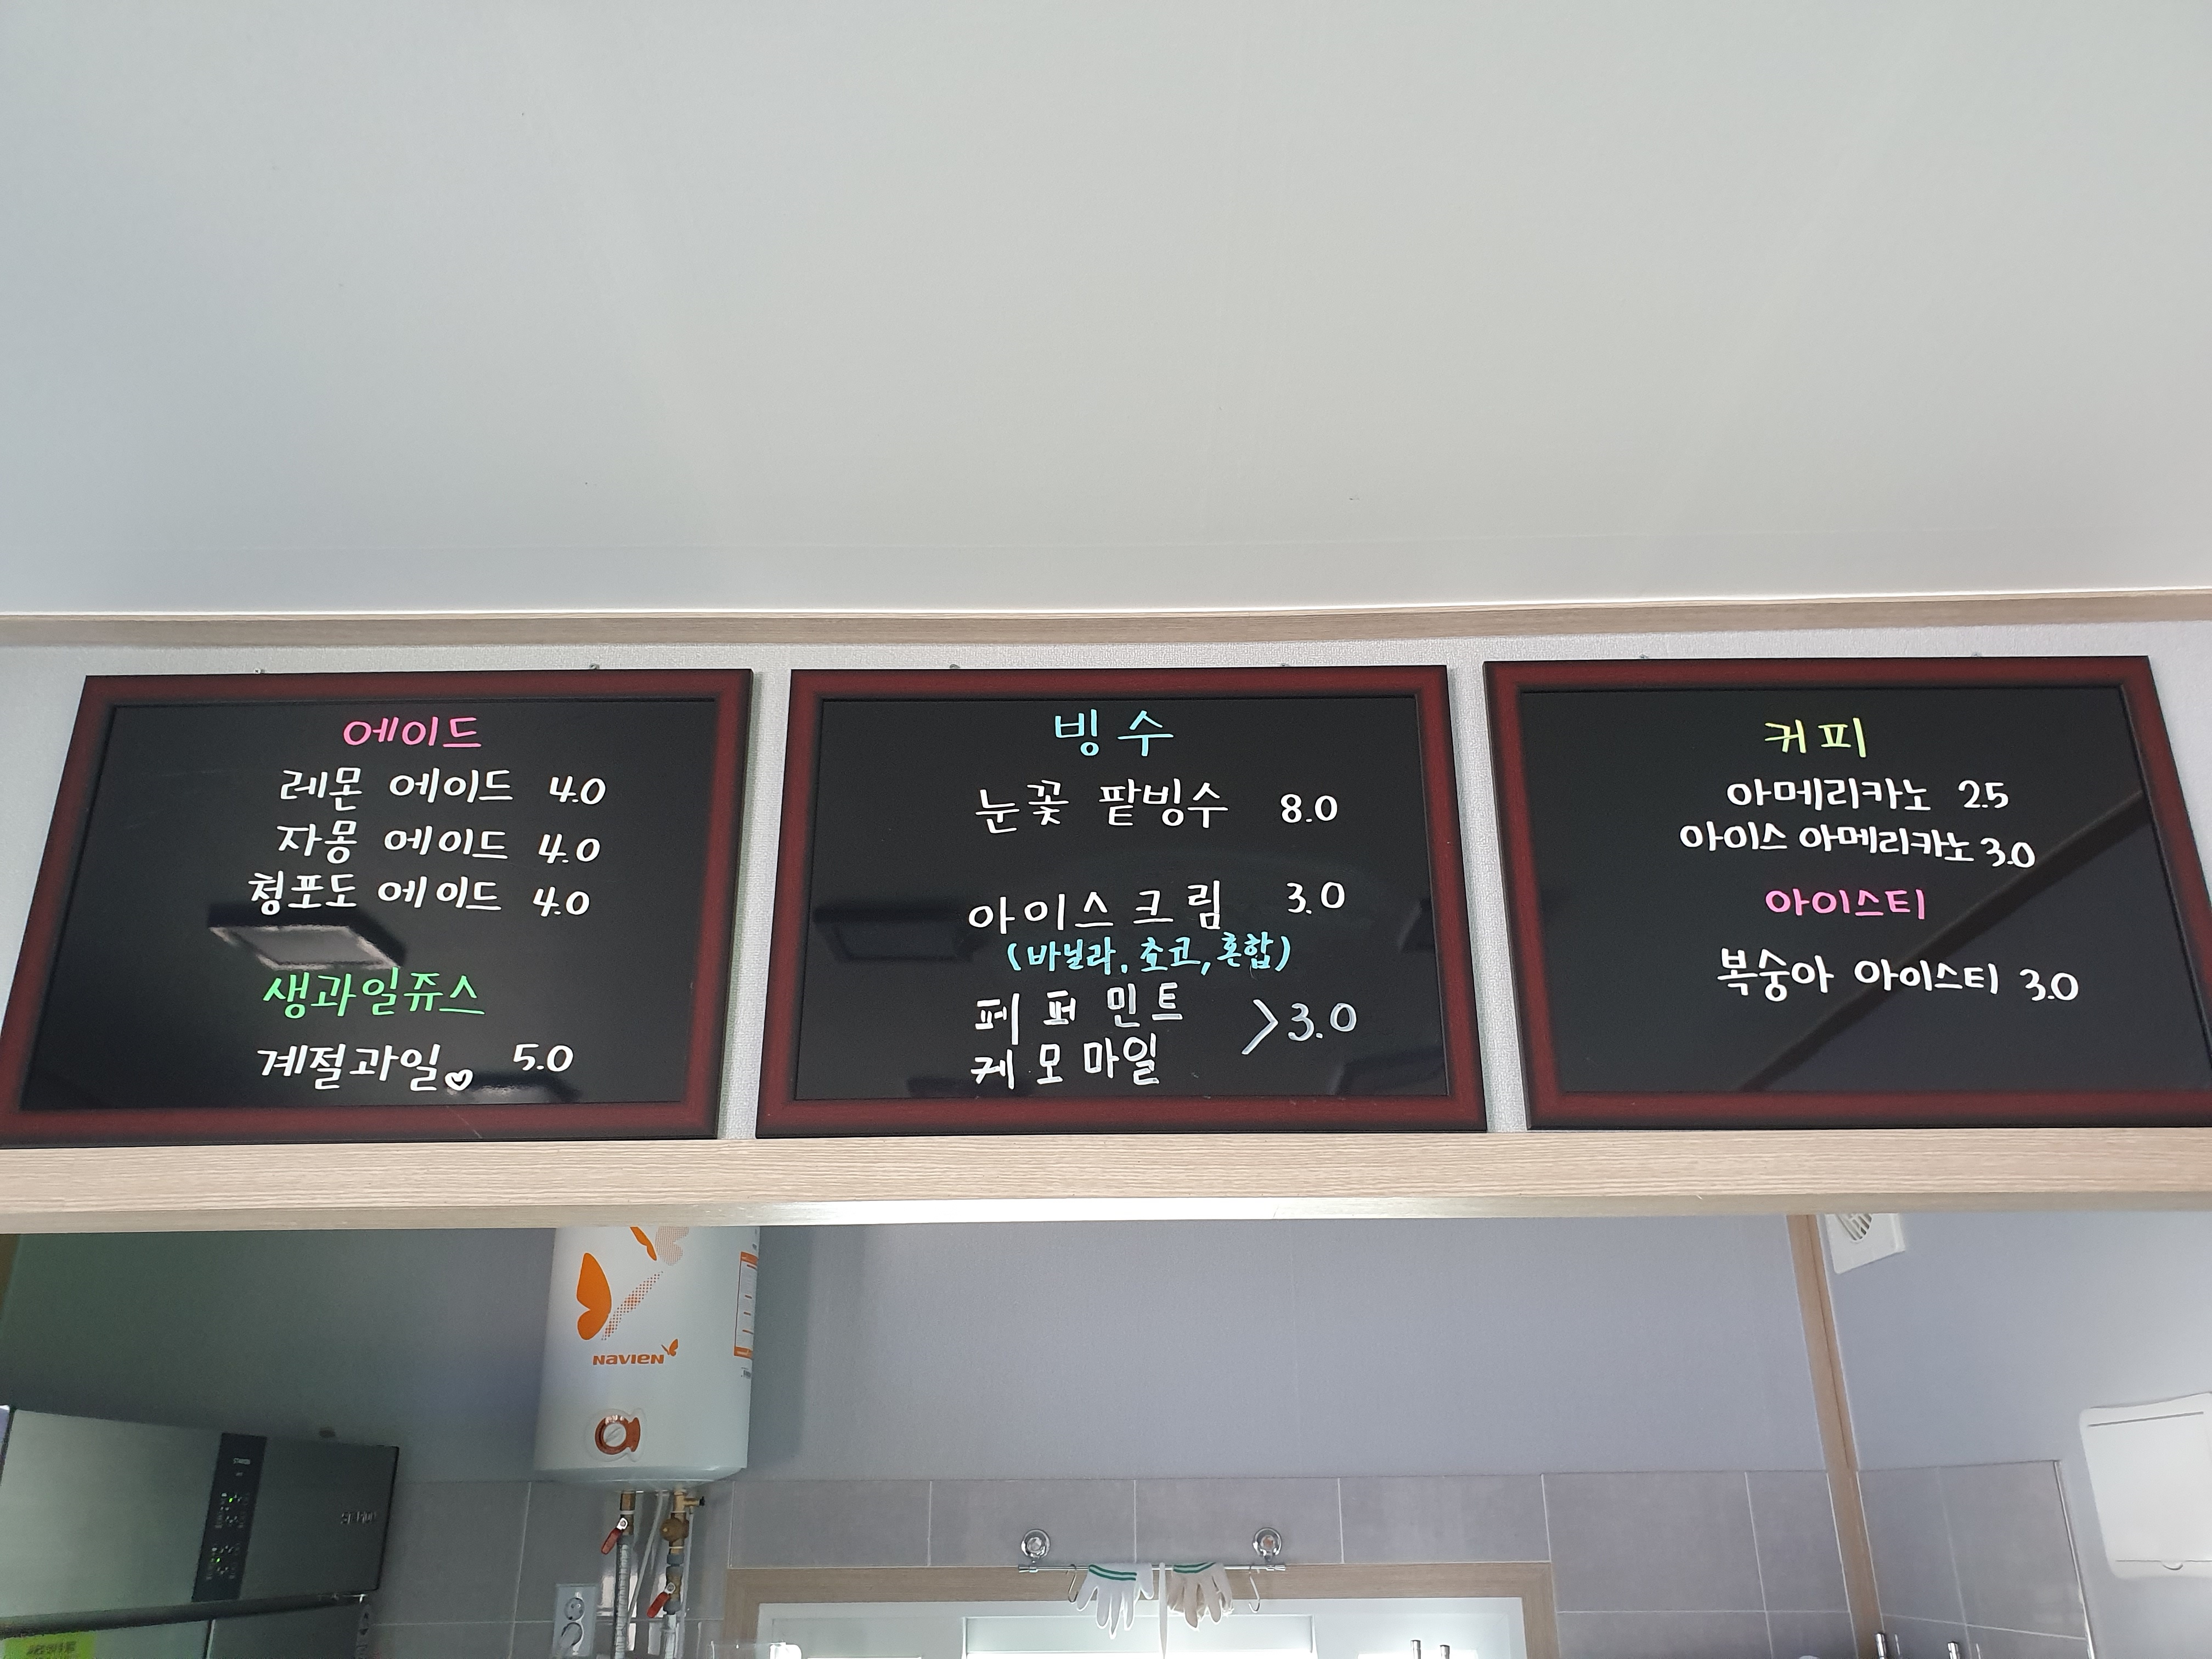 에이드
레몬 에이드 4.0
자몽 에이드 4.0
청포도 에이드 4.0
생과일쥬스
계절과일♡ 5.0
빙수
눈꽃 팥빙수 8.0
아이스크림 3.0
(바닐라, 초코, 혼합)
페퍼민트
케모마일 >3.0
커피
아메리카노 2.5
아이스 아메리카노 3.0
아이스티
복숭아 아이스티 3.0
NAVIEN